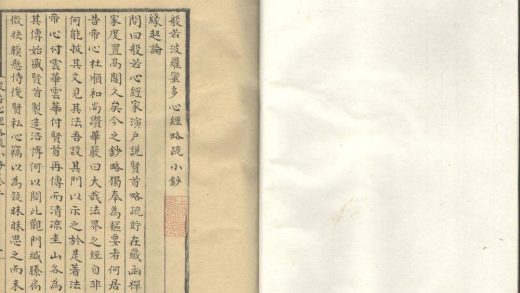 般若波羅蜜多心經略疏小鈔
緣起論
問曰般若心經家演戶說賢首略疏貯在藏函禪
家度置高閣久矣今之鈔略獨奉為樞要者何居
昔帝心杜順和尚讚華嚴曰大哉法界之經自非
何能披其文見其法吾設其門以示之於是著法
帝心付雲華雲華付賢首再傳而清涼圭山各為
其傳始盛賢首製造浩博何以閟此觀門緘縢為
微扶賾懸待後賢私心竊以為疑昧昧思之而未